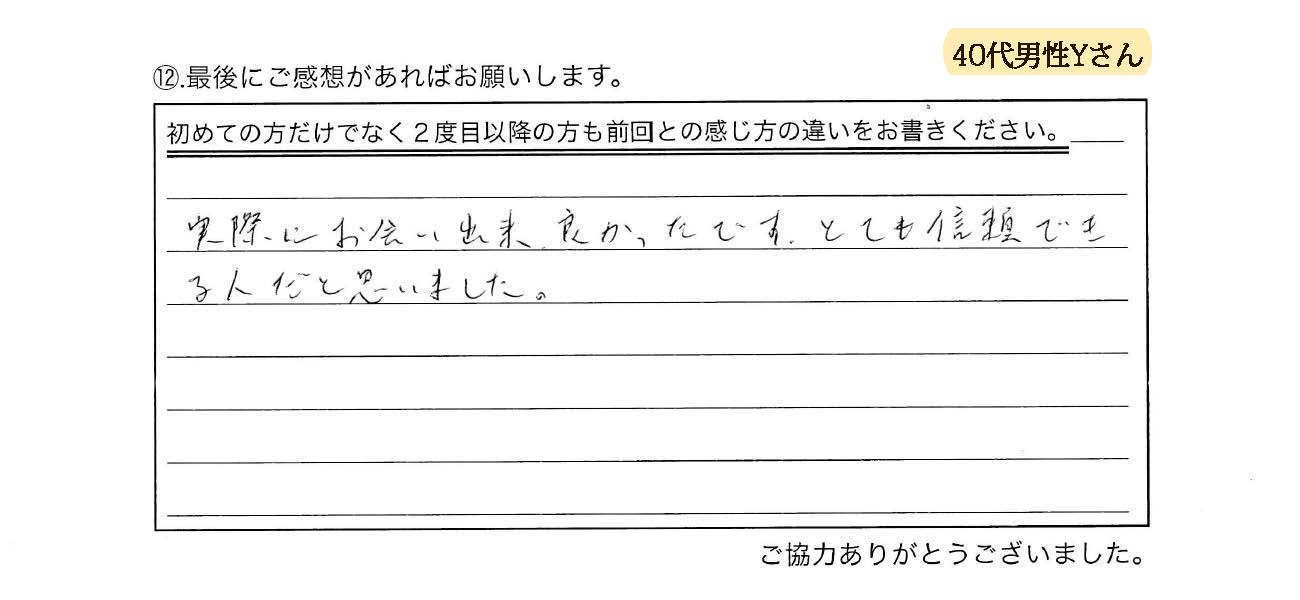 40代男性Yさん
⑫.最後にご感想があればお願いします。
初めての方だけでなく２度目以降の方も前回との感じ方の違いをお書きください。
実際にお会い出来、良かったです。とても信頼でき
る人だと思いました。
ご協力ありがとうございました。